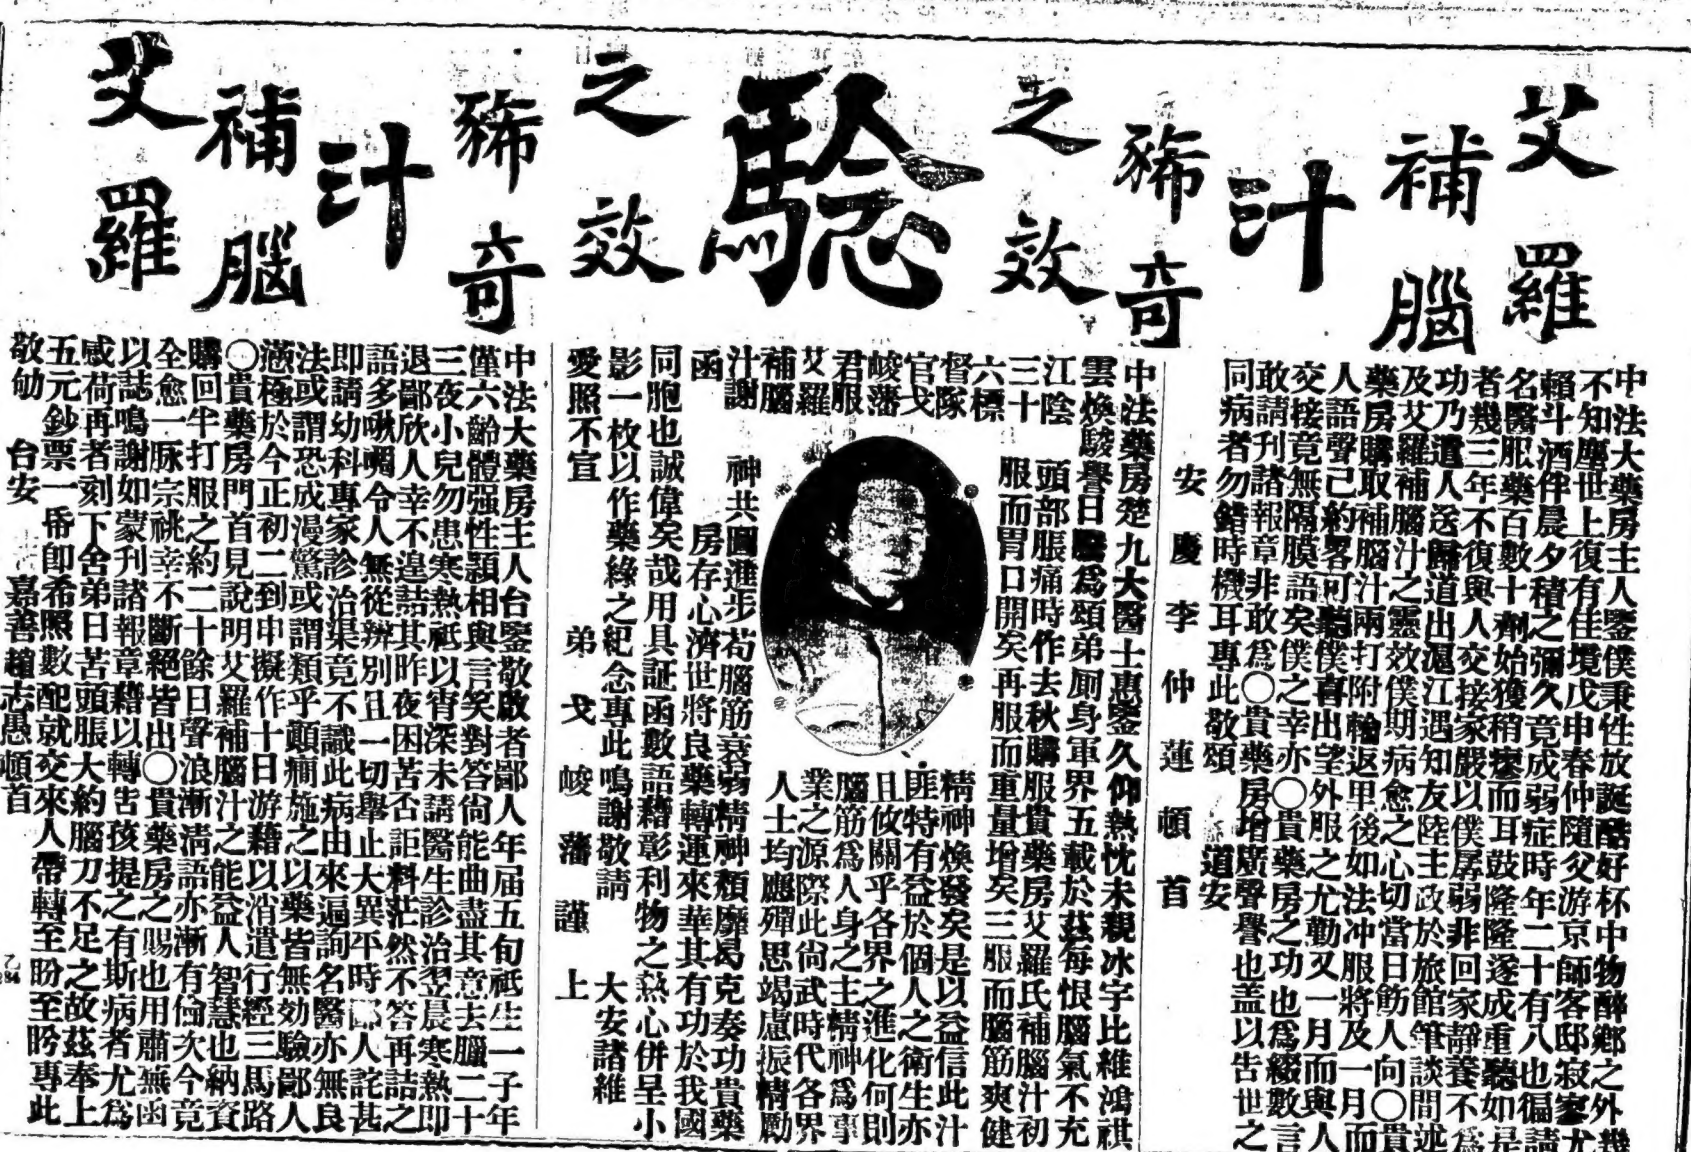 艾羅
補腦
汁
豨奇
之效
騐
之效
豨奇
汁
補腦
艾羅
中法大藥房主人鑒僕秉性放誕酷好杯中物醉鄉之外幾
不知塵世上復有佳境戊申春仲隨父游京師客邸寂寥尤
賴斗酒伴晨夕積之彌久竟成弱症時年二十有八也徧請
名醫服藥百數十劑始獲稍瘥而耳鼓隆隆遂成重聽如是
者幾三年不復與人交接家嚴以僕孱弱非回家靜養不為
功乃遣人送歸道出滬江遇知友陸主政於旅館筆談間述
及艾羅補腦汁之靈效僕期病愈之心切當日飭人向〇貴
藥房購取補腦汁兩打附輪返里後如法冲服將及一月而
人語聲已約畧可聽僕喜出望外服之尤勤又一月而與人
交接竟無隔膜語矣僕之幸亦〇貴藥房之功也為綴數言
敢請刊諸報章非敢為〇貴藥房增廣聲譽也盖以告世之
同病者勿錯時機耳專此敬頌 道安
安慶李仲蓮頓首
中法藥房楚九大醫士惠鑒久仰熱忱未親冰宇比維鴻祺
雲煥駿譽日騰為頌弟厠身軍界五載於茲每恨腦氣不充
江陰
三十
六標
督隊
官戈
峻藩
君服
艾羅
補腦
汁謝
函
頭部脹痛時作去秋購服貴藥房艾羅氏補腦汁初
服而胃口開矣再服而重量增矣三服而腦筋爽健
精神煥發矣是以益信此汁
匪特有益於個人之衛生亦
且攸關乎各界之進化何則
腦筋為人身之主精神為事
業之源際此尚武時代各界
人士均應殫思竭慮振精勵
神共圖進步苟腦筋衰弱精神頹靡曷克奏功貴藥
房存心濟世將良藥轉運來華其有功於我國
同胞也誠偉矣哉用具証函數語藉彰利物之熱心併呈小
影一枚以作藥緣之紀念專此鳴謝敬請 大安諸維
愛照不宣 弟戈峻藩謹上
中法大藥房主人台鑒敬啟者鄙人年屆五旬祗生一子年
僅六齡體强性頴相與言笑對答尙能曲盡其意去臘二十
三夜小兒勿患寒熱祗以宵深未請醫生診治翌晨寒熱即
退鄙欣人幸不遑詰其昨夜困苦否詎料茫然不答再詰之
語多啾嘲令人無從辨別且一切舉止大異平時鄙人詫甚
即請幼科專家診治渠竟不識此病由來遍詢名醫亦無良
法或謂恐成漫驚或謂類乎顚癎施之以藥皆無効驗鄙人
懣極於今正初二到申擬作十日游藉以消遣行經三馬路
〇貴藥房門首見說明艾羅補腦汁之能益人智慧也納資
購回半打服之約二十餘日聲浪漸淸語亦漸有倫次今竟
全愈一脉宗祧幸不斷絕皆出〇貴藥房之賜也用肅蕪函
以誌鳴謝如蒙刋諸報章藉以轉吿孩提之有斯病者尤為
感荷再者刻下舍弟日苦頭脹大約腦力不足之故茲奉上
五元鈔票一帋卽希照數配就交來人帶轉至盼至盼專此
敬劬 台安 嘉善趙志愚頓首